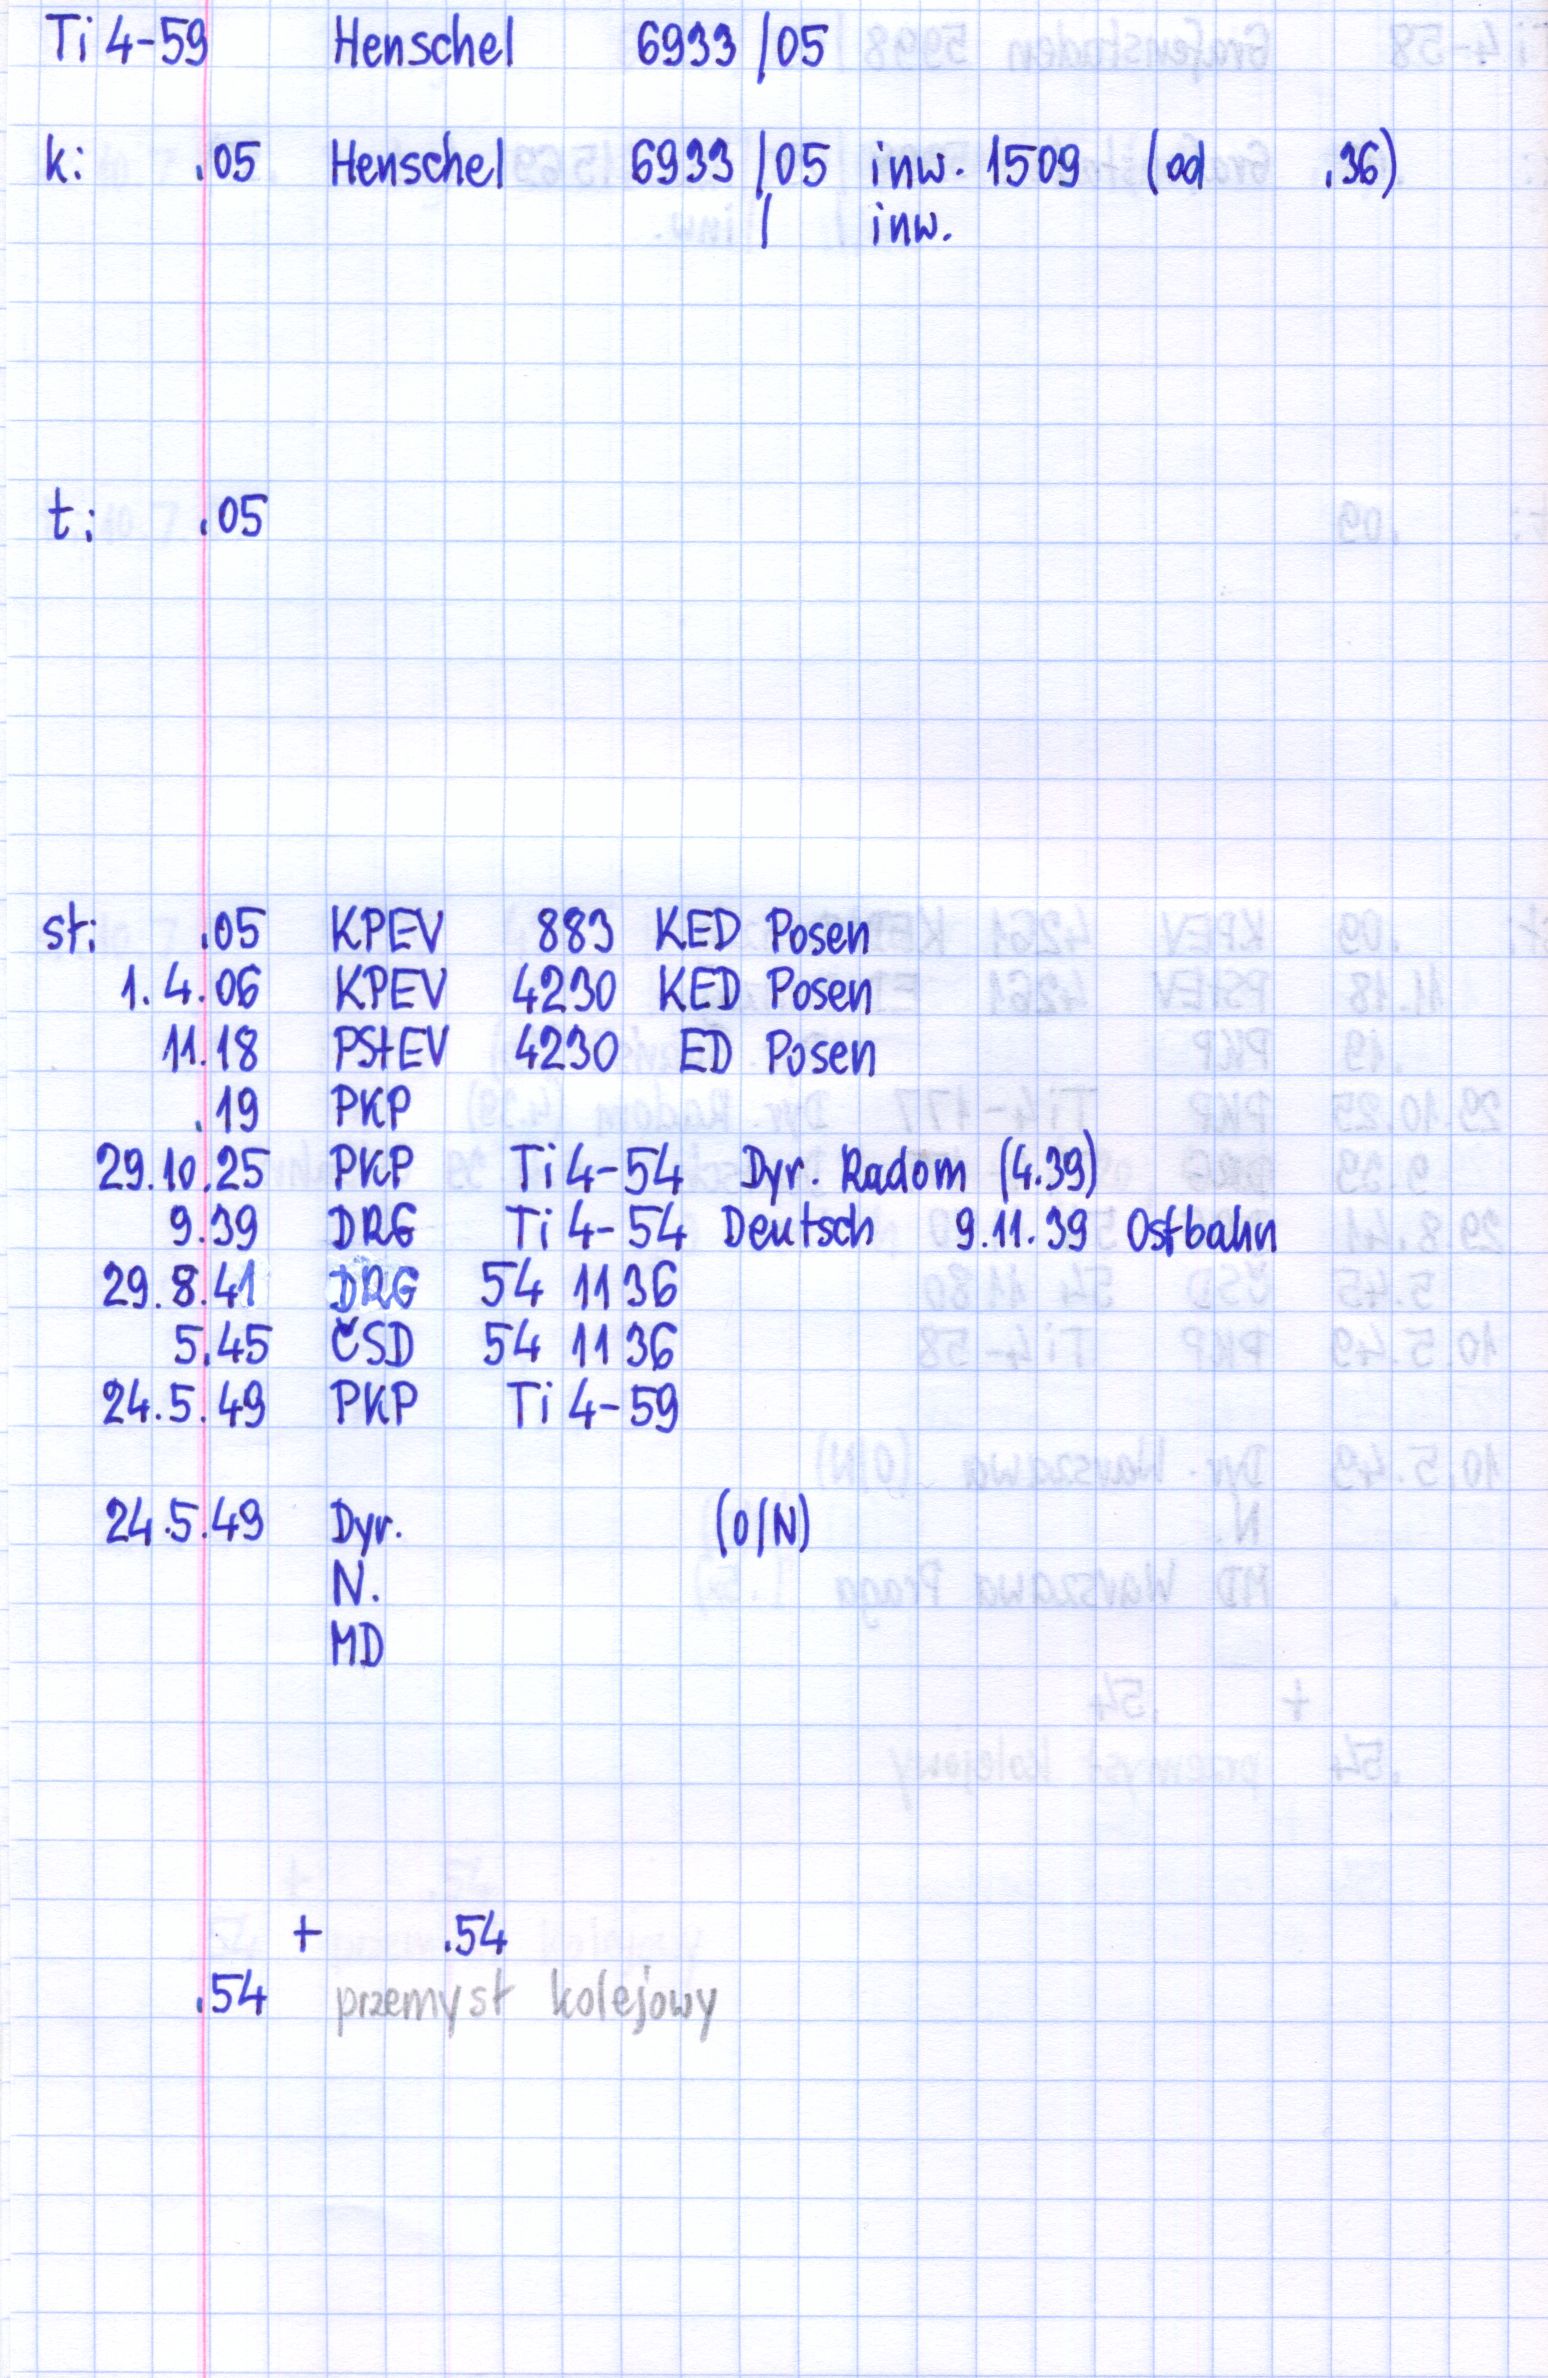 Ti 4-59 Henschel 6933 /05
k: .05 Henschel 6933 /05 inw. 1509 (od .36)
/ inw.
t: .05
st: .05 KPEV 883 KED Posen
1.4.06 KPEV 4230 KED Posen
11.18 PStEV 4230 ED Posen
.19 PKP
29.10.25 PKP Ti 4-54 Dyr. Radom (4.39)
9.39 DRG Ti 4-54 Deutsch 9.11.39 Ostbahn
29.8.41 DRG 54 1136
5.45 ČSD 54 1136
24.5.49 PKP Ti 4-59
24.5.49 Dyr. (O/N)
N.
MD
+ .54
.54 przemysł kolejowy